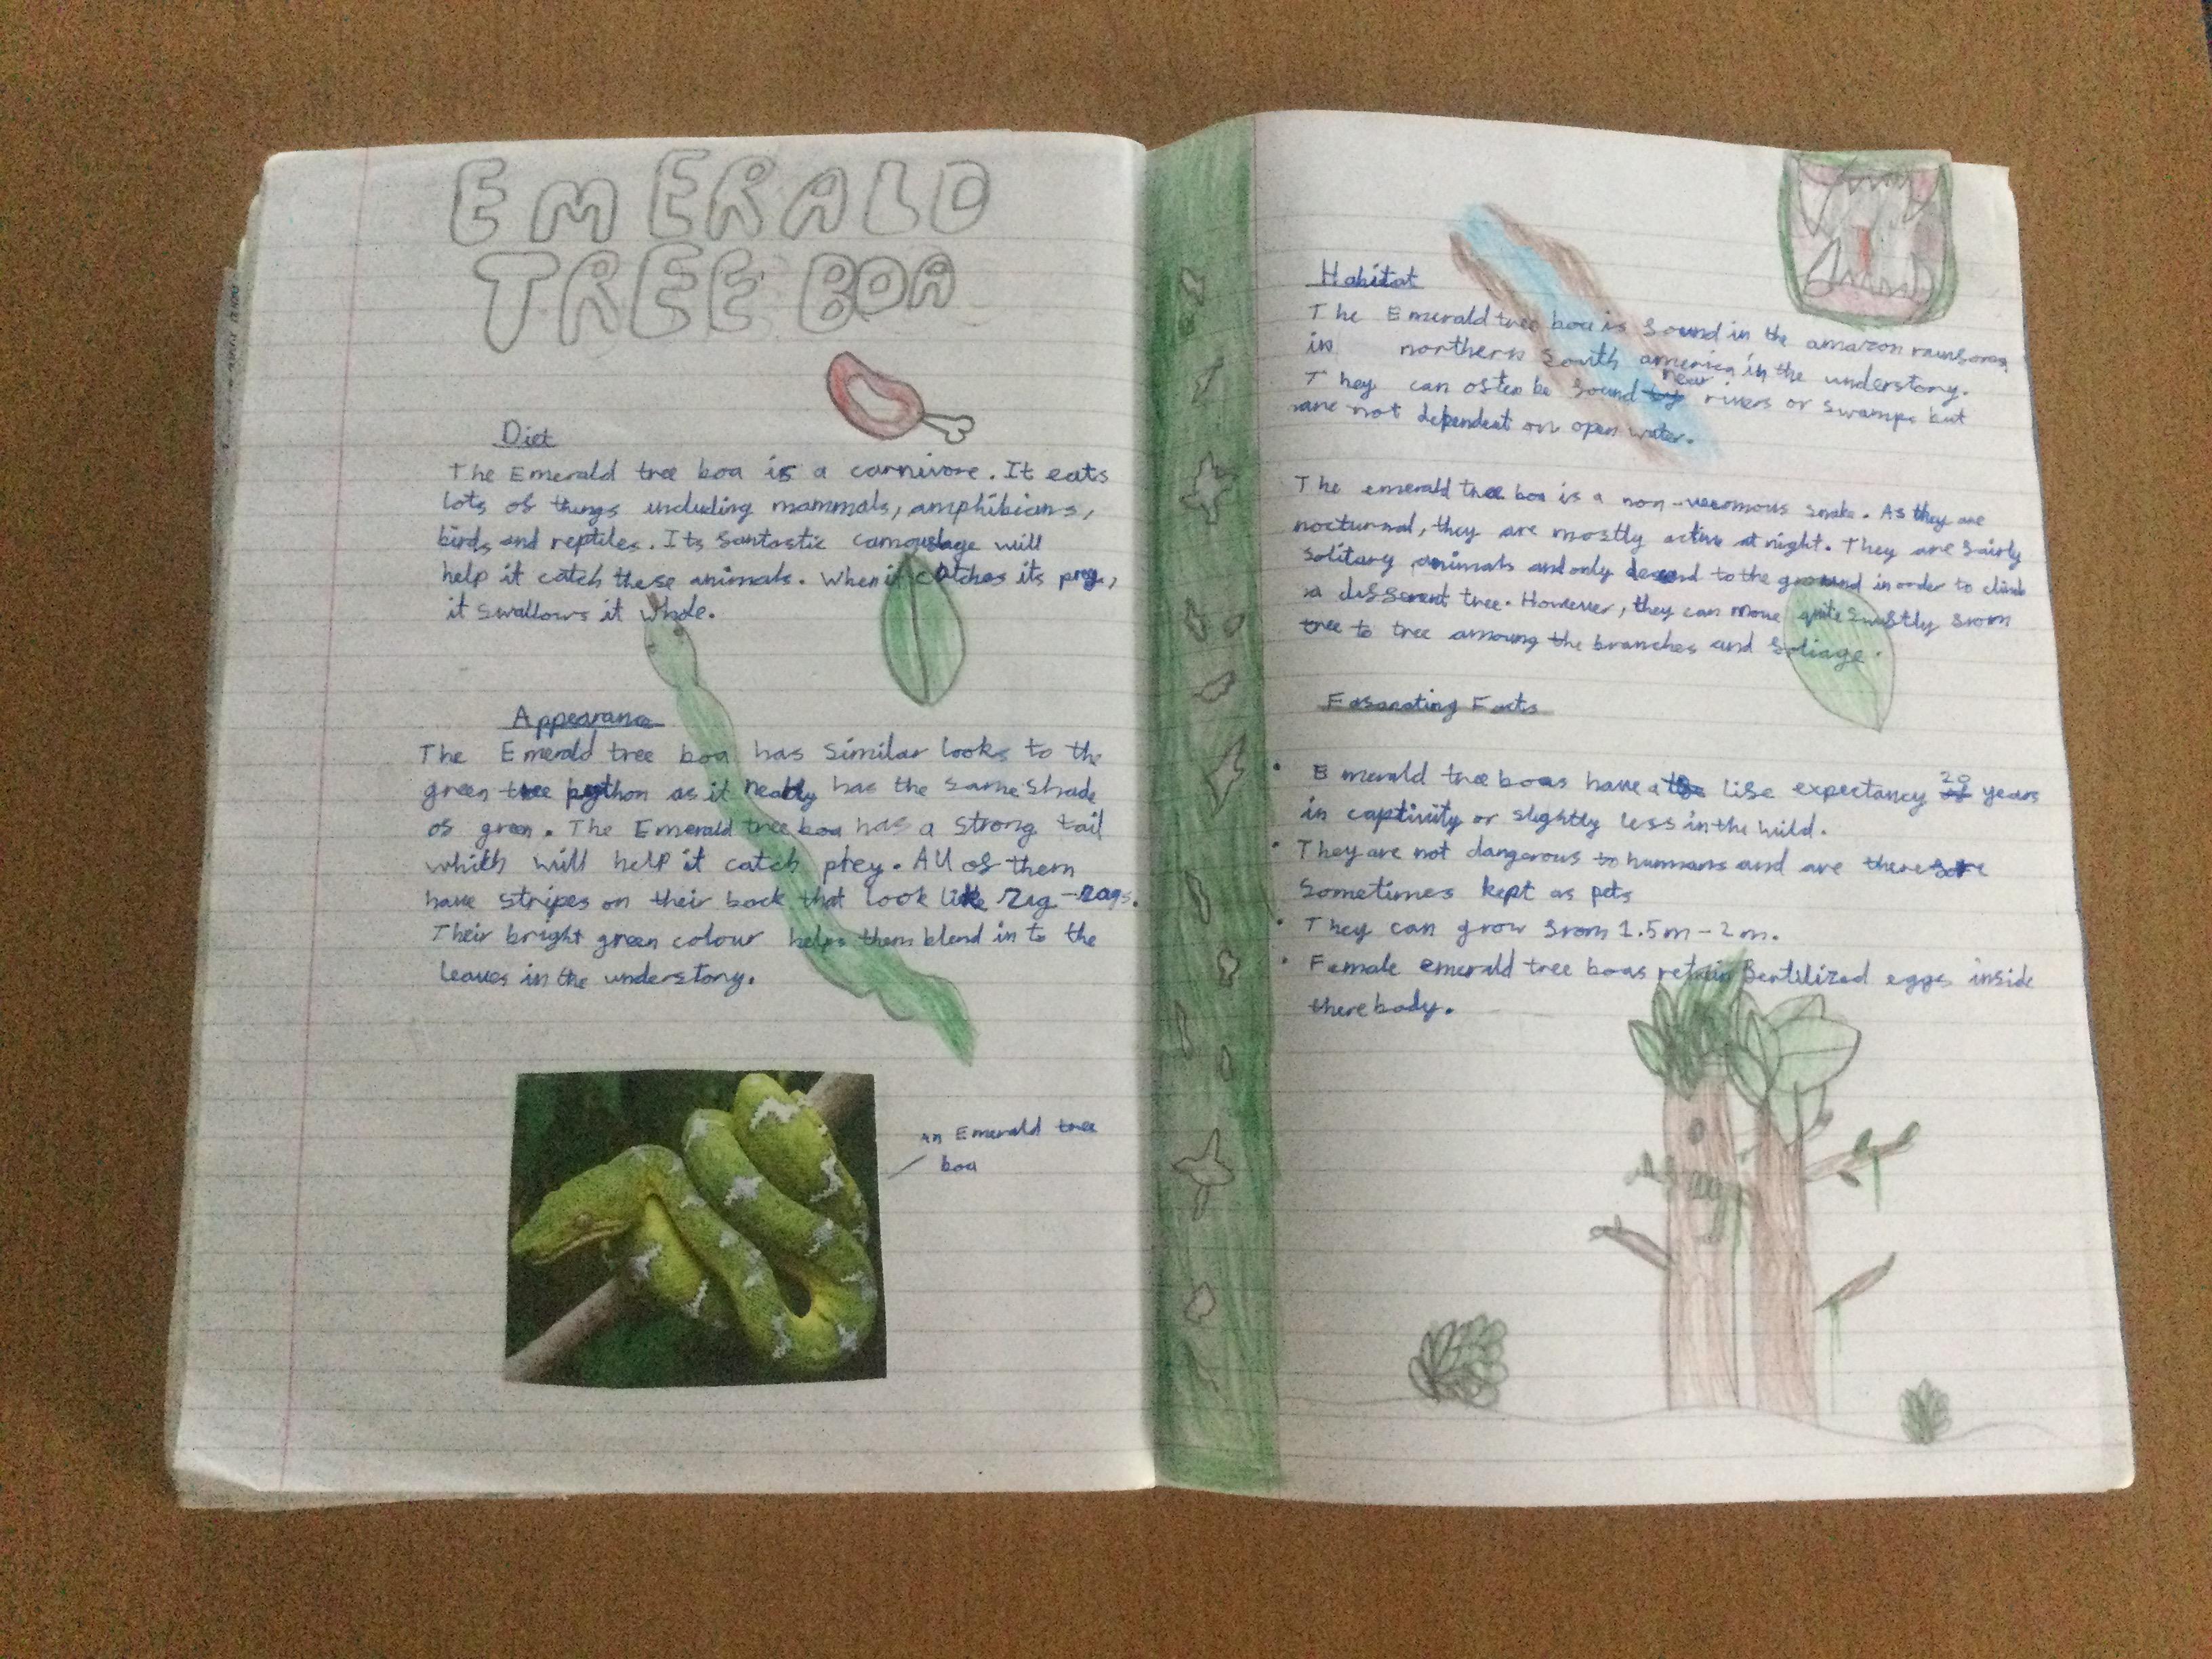 EMERALD
TREE BOA
Diet
The Emerald tree boa is a carnivore. It eats
lots of things including mammals, amphibians,
birds and reptiles. Its fantastic camouflage will
help it catch these animals. When it catches its prey,
it swallows it whole.
Appearance
The Emerald tree boa has similar looks to the
green tree python as it neatly has the same shade
of green. The Emerald tree boa has a strong tail
which will help it catch prey. All of them
have stripes on their back that look like zig-zags.
Their bright green colour helps them blend in to the
leaves in the understory.
an Emerald tree
boa
Habitat
The Emerald tree boa is found in the amazon rainforest
in northern South america in the understory.
They can often be found near rivers or swamps but
are not dependent on open water.
The emerald tree boa is a non-venomous snake. As they are
nocturnal, they are mostly active at night. They are fairly
solitary animals and only descend to the ground in order to climb
a different tree. However, they can move quite swiftly from
tree to tree amoung the branches and foliage.
Fasanating Facts
• Emerald tree boas have a life expectancy 20 years
in captivity or slightly less in the wild.
• They are not dangerous to humans and are therefore
sometimes kept as pets
• They can grow from 1.5m - 2m.
• Female emerald tree boas retain fertilized eggs inside
there body.